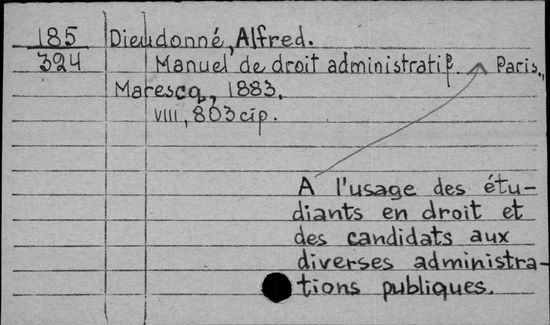 185 Dieudonné, Alfred.
324 Manuel de droit administratif. Paris.,
Marescq, 1883.
VIII, 803 cip.
A l'usage des étu-
diants en droit et
des candidats aux
diverses administra-
tions publiques.